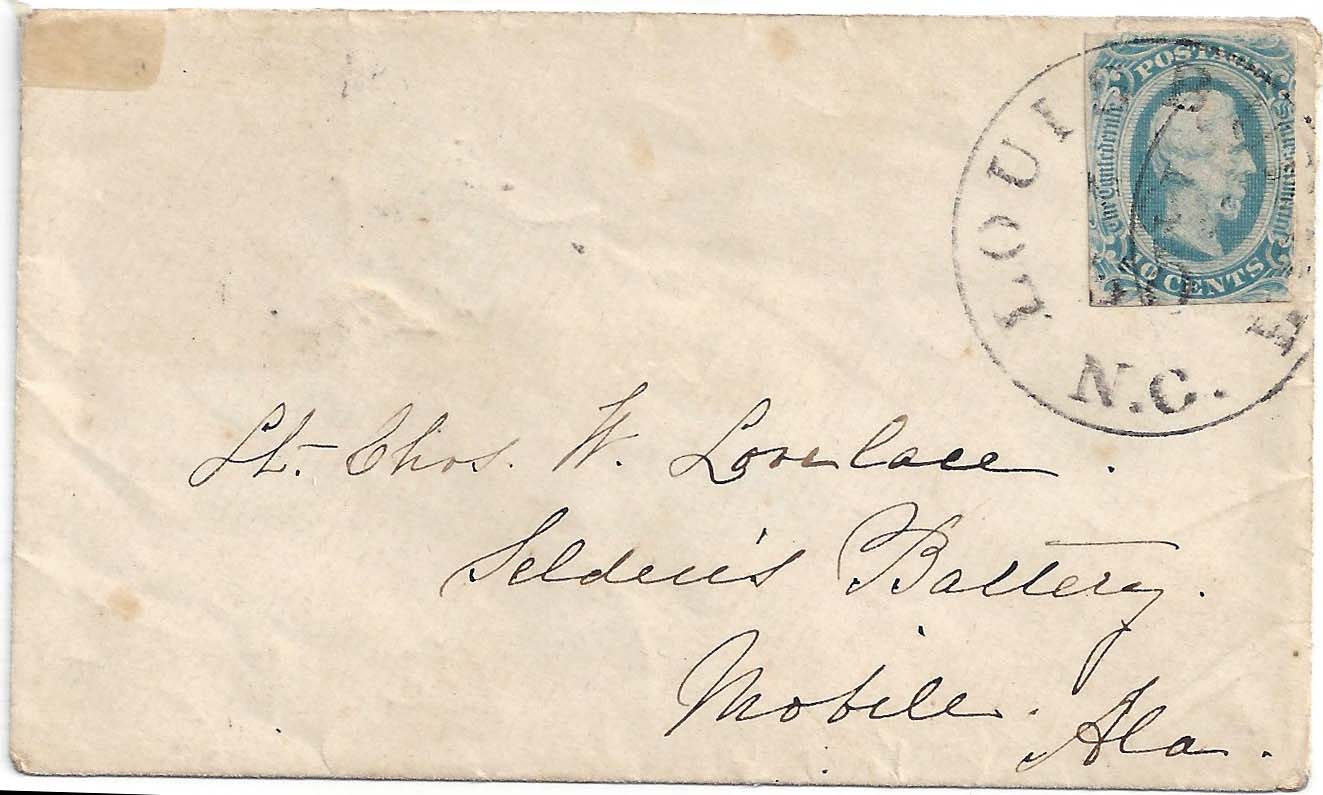 POSTAGE
The Confederate States of America
10 CENTS
LOUISBURG
N.C.
Lt. Chas. W. Lovelace.
Selden's Battery.
Mobile. Ala.